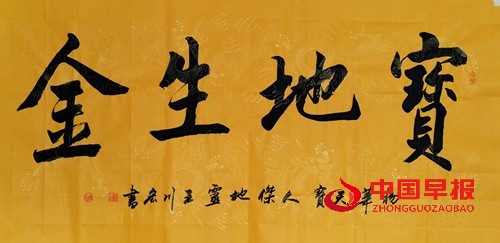 寶地生金
物華天寶人傑地靈王川書
中国早报
ZHONGGUOZAOBAO